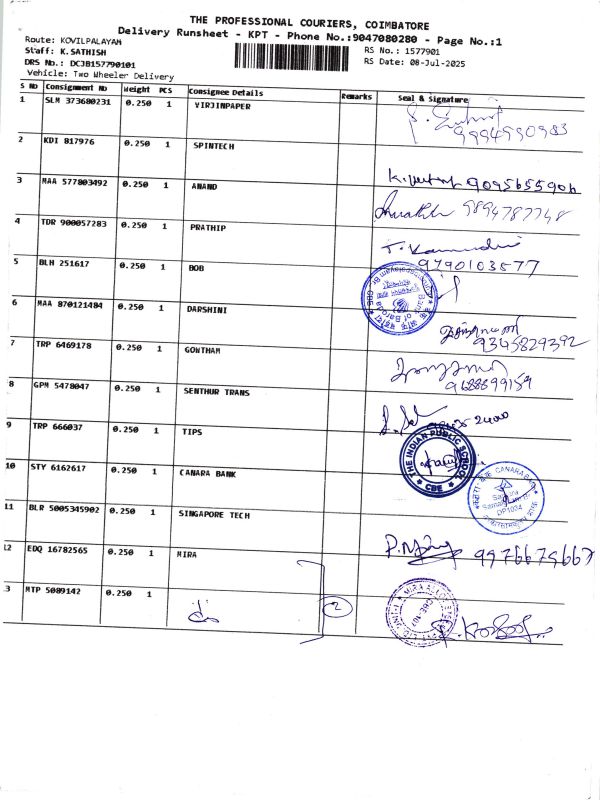 THE PROFESSIONAL COURIERS, COIMBATORE
Delivery Runsheet - KPT - Phone No.:9047080280 - Page No.:1
Route: KOVILPALAYAM
Staff: K.SATHISH
RS No.: 1577901
DRS No.: DCJB157790101
RS Date: 08-Jul-2025
Vehicle: Two Wheeler Delivery
S No Consignment No Weight PCS Consignee Details Remarks Seal & Signature
1 SLM 373680231 0.250 1 VIRJINPAPER
9994590983
2 KDI 817976 0.250 1 SPINTECH
9095655906
3 MAA 577803492 0.250 1 ANAND
9894787748
4 TDR 900057283 0.250 1 PRATHIP
9790103577
5 BLH 251617 0.250 1 BOB
Bank of Baroda
6 MAA 870121484 0.250 1 DARSHINI
9345829392
7 TRP 6469178 0.250 1 GONTHAM
9688899159
8 GPM 5478047 0.250 1 SENTHUR TRANS
9 TRP 666037 0.250 1 TIPS
THE INDIAN PUBLIC SCHOOL
CBE
10 STY 6162617 0.250 1 CANARA BANK
CANARA BANK
DP1034
11 BLR 5005345902 0.250 1 SINGAPORE TECH
9976675667
12 EDQ 16782565 0.250 1 MIRA
13 MTP 5089142 0.250 1
2